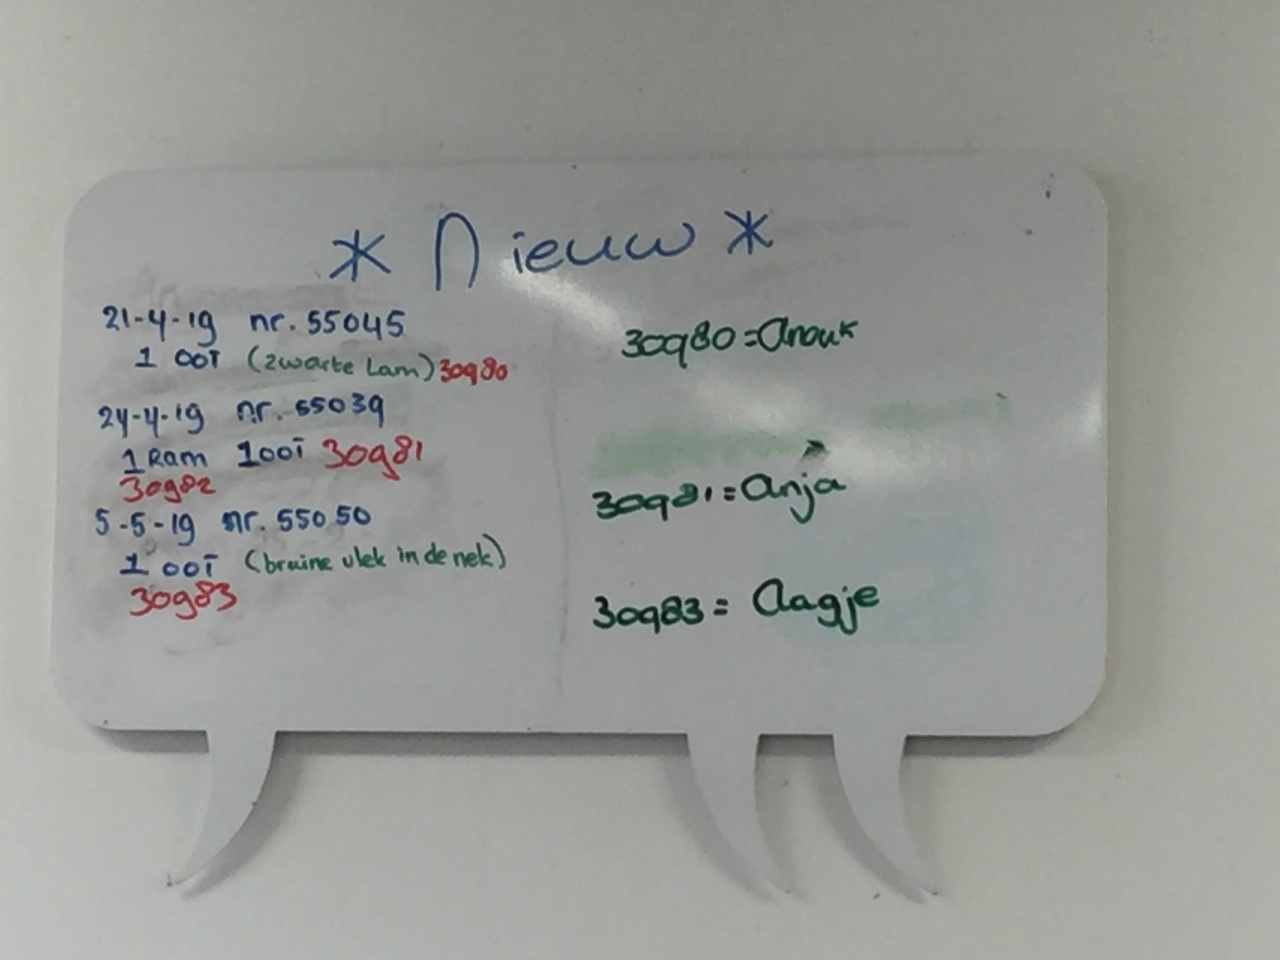 * Nieuw *
21-4-19 nr. 55045
1 ooi (zwarte Lam) 30980
24-4-19 nr. 55039
1 Ram 1 ooi 30981
30982
5-5-19 nr. 55050
1 ooi (bruine vlek in de nek)
30983
30980 = Anouk
30981 = Anja
30983 = Aagje